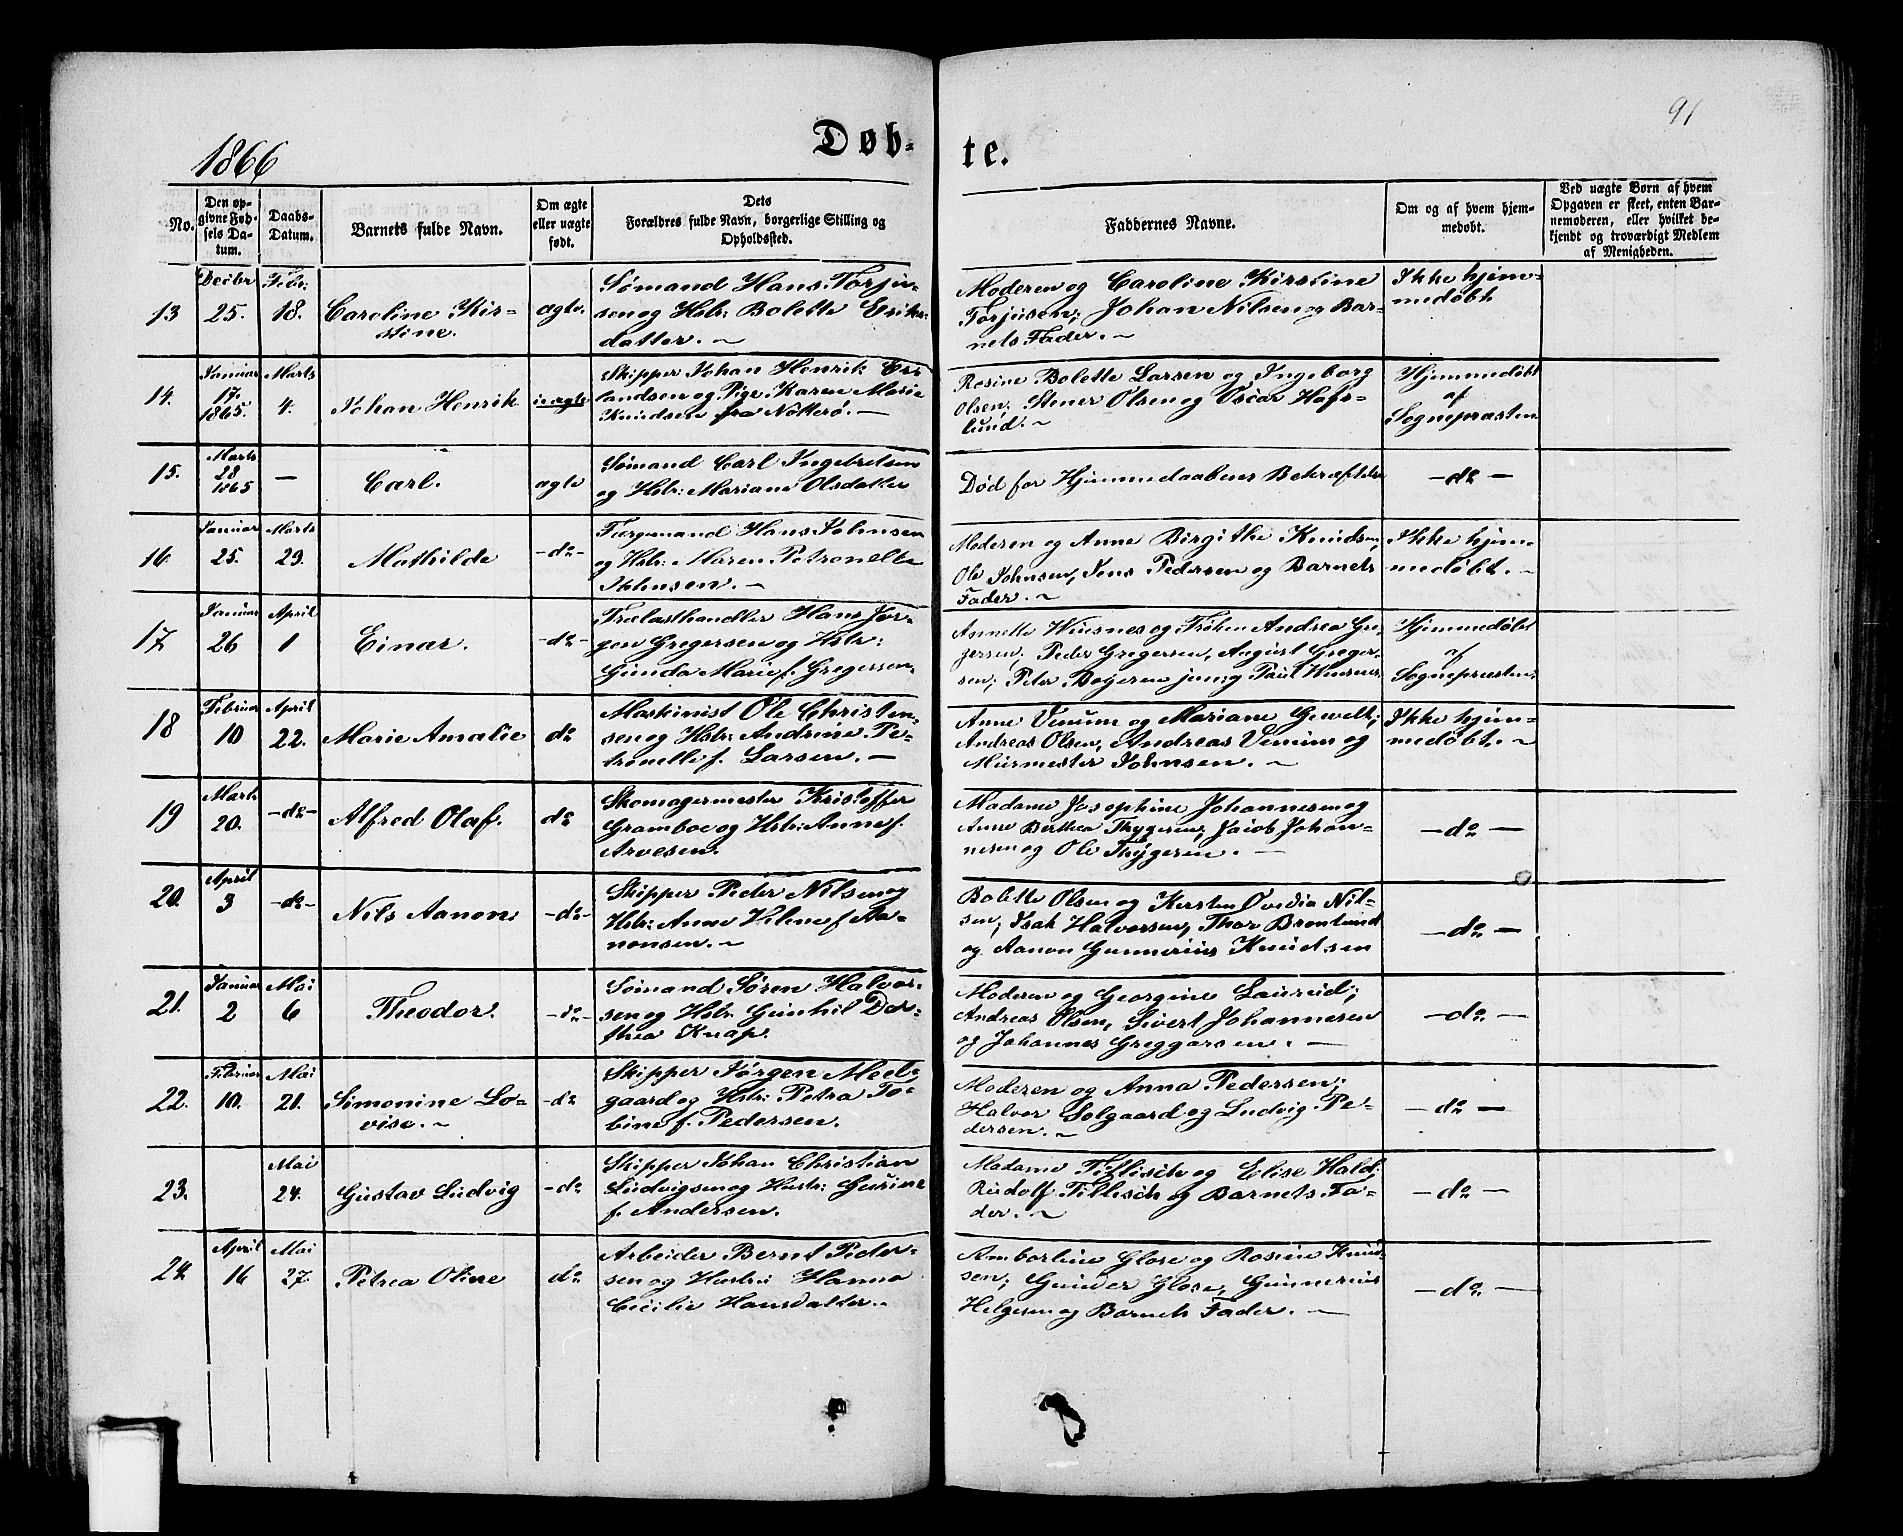 91
1866
Døb- te.
No.
Den op-
givne Fød-
sels Da-
tum.
Daabs-
Datum.
Barnets fulde Navn.
Om ægte
eller uægte
født.
Dets
Forældres fulde Navn, borgerlige Stilling og
Opholdssted.
Faddernes Navne.
Om og af hvem hjem-
medøbt.
Ved uægte Børn af hvem
Opgaven er skeet, enten Bar-
nemoderen, eller hvilket be-
kjendt og troværdigt Medlem
af Menigheden.
13
Decbr
25.
Febr:
18.
Caroline Kir-
stine.
ægte.
Sømand Hans Torju-
sen og Hstr: Bolette Eriks-
datter. ~
Moderen og Caroline Kirstine
Torjusen; Johan Nilsen og Bar-
nets Fader. ~
Ikke hjem-
medøbt
14.
Januar
17.
1865.
Marts
4.
Johan Henrik
uægte
Skipper Johan Henrik Er-
landsen og Pige Karen Marie
Knudsen fra Nøtterø. —
Rosine Bolette Larsen og Ingeborg
Olsen; Stener Olsen og Oscar Hafs-
lund. ~
Hjemmedøbt
af
Sognepræsten
15.
Marts
28
1865
—
Carl.
ægte
Sømand Carl Ingebretsen
og Hstr: Mariane Olsdatter
Død før Hjemmedaabens Bekræftelse
— do —
16.
Januar
25.
Marts
29.
Mathilde
- do -
Færgemand Hans Johnsen
og Hstr: Maren Petronelle
Johnsen. ~
Moderen og Anne Birgithe Knudsen,
Ole Johnsen, Jens Pedersen og Barnets
Fader. ~
Ikke hjem-
medøbt. ~
17.
Januar
26
April
1
Einar.
- do -
Trælasthandler Hans Jør-
gen Gregersen og Hstr:
Gunda Marie f. Gregersen.
Annette Wiusnes og Frøken Andrea Gre-
gersen; Peder Gregersen, August Greger-
sen; Peter Bøyesen jung Paul Wiusnes
Hjemmedøbt
af
Sognepræsten
18
Februar
10
April
22.
Marie Amalie
do
Maskinist Ole Christen-
sen og Hstr: Andrine Pe-
tronelle f. Larsen. —
Anne Venum og Mariane Gewelt;
Andreas Olsen, Andreas Venum og
Murmester Johnsen. ~
Ikke hjem-
medøbt. ~
19
Marts
20.
- do -
Alfred Olaf.
do
Skomagermester Kristoffer
Gramboe og Hstr: Anne f.
Arvesen.
Madame Josephine Johannesen og
Anne Berthea Thygesen; Jacob Johan-
nesen og Ole Thygesen. —
— do —
20.
April
3
- do -
Nils Aanon
- do -
Skipper Peder Nilsen og
Hstr: Anne Helene f. Aa-
nonsen. ~
Bolette Olsen og Kirsten Ovidia Nil-
sen; Isak Halvorsen, Thor Brontund
og Aanon Gunnerius Knudsen
— do —
21.
Januar
2
Mai
6
Theodor.
- do -
Sømand Søren Halvor-
sen og Hstr. Gunhil Dor-
thea Knap.
Moderen og Georgine Laurud;
Andreas Olsen, Sivert Johannesen
og Johannes Greggarsen. —
— do —
22.
Februar
10.
Mai
21.
Simonine Lo-
vise. ~
- do
Skipper Jørgen Meel-
gaard og Hstr: Petra To-
bine f. Pedersen.
Moderen og Anna Pedersen;
Halvor Solgaard og Ludvig Pe-
dersen. ~
— do —
23.
Mai
24.
Gustav Ludvig
- do
Skipper Johan Christian
Ludvigsen og Hustr: Gurine
f. Andersen.
Madame Tillisch og Elise Hald;
Rudolf Tillisch og Barnets Fa-
der. ~
— do —
24
April
16
Mai
27.
Petrea Oline
do
Arbeider Bernt Peder-
sen og Hustru Hanna
Cecilie Hansdatter.
Amborline Glose og Rosine Knud-
sen; Gunder Glose, Gunnerius
Helgesen og Barnets Fader. —
— do —